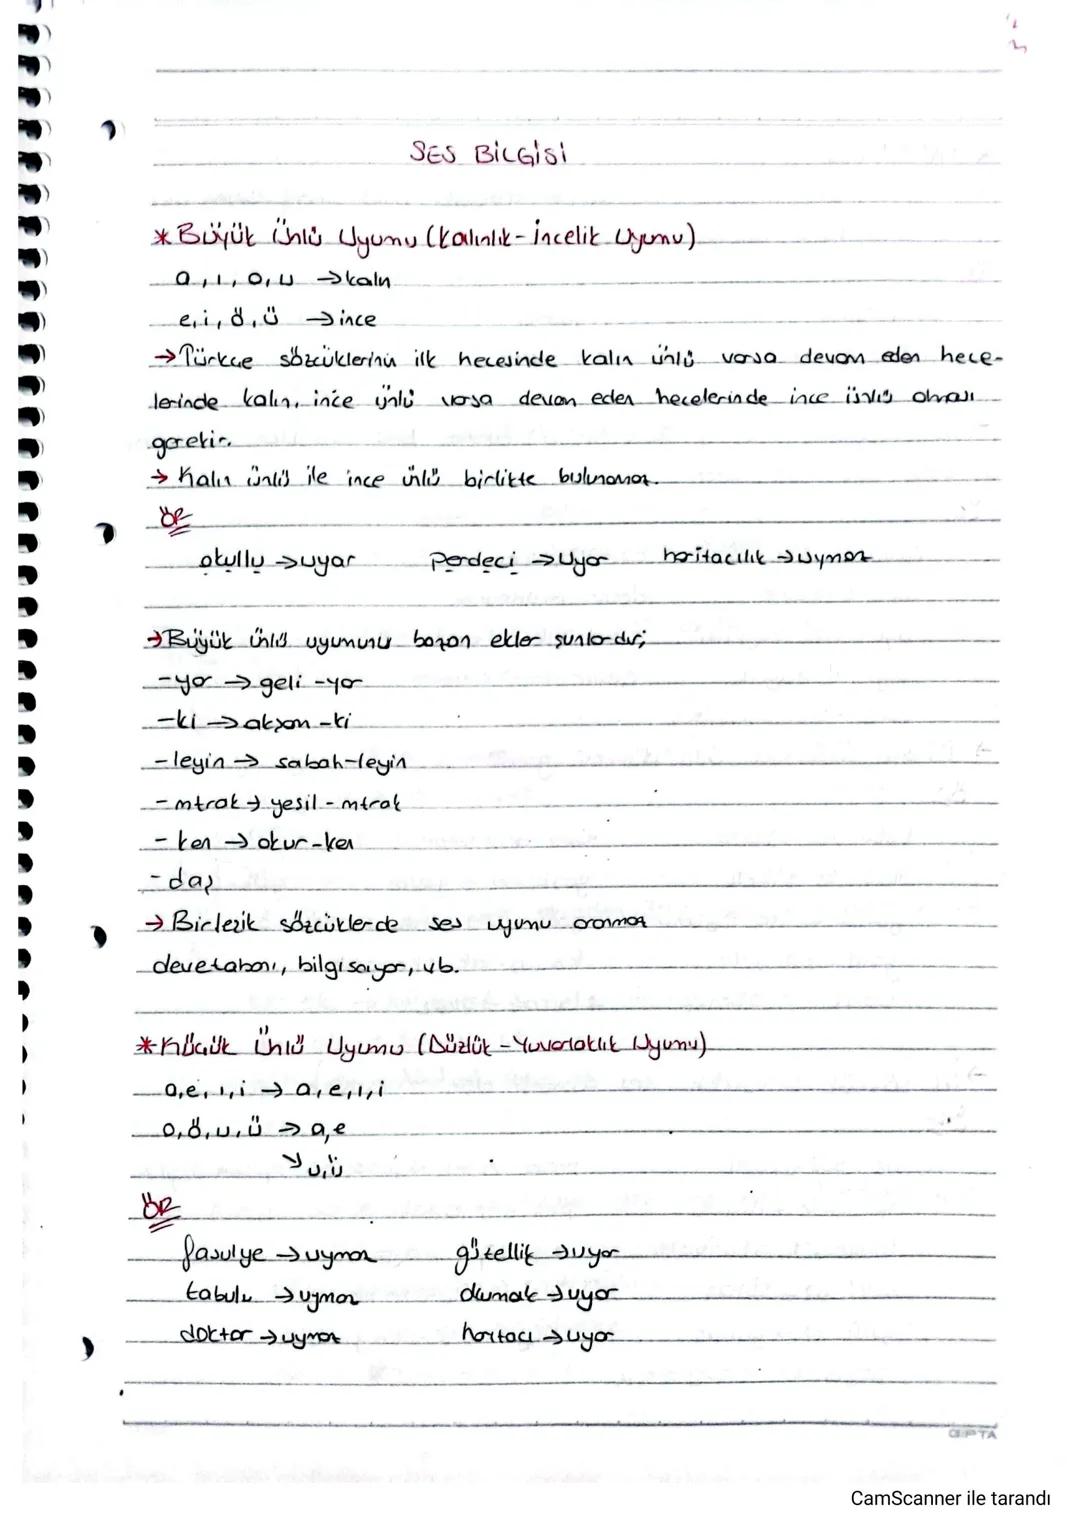 SES BİLGİSİ
* Büyük Ünlü Uyumu (Kalınlık - İncelik Uyumu)
a, ı, o, u → kalın
e, i, ö, ü → ince
→ Türkçe sözcüklerinin ilk hecesinde kalın ünlü varsa devam eden hece-
lerinde kalın, ince ünlü varsa devam eden hecelerinde ince ünlü olması
gerekir.
→ Kalın ünlü ile ince ünlü birlikte bulunamaz.
ÖR
okullu → uyar perdeci → Uyar haritacılık → uymaz
→ Büyük ünlü uyumunu bozan ekler şunlardır;
-yor → geli -yor
-ki → akşam -ki
-leyin → sabah-leyin
-mtrak → yesil - mtrak
- ken → okur-ken
- daş
→ Birleşik sözcüklerde ses uyumu aranmaz
devetabanı, bilgisayar, vb.
* Küçük Ünlü Uyumu (Düzlük - Yuvarlaklık Uyumu)
a, e, ı, i → a, e, ı, i
o, ö, u, ü → a, e
↘ u, ü
ÖR
fasulye → uymaz güzellik → uyar
tabulu → uymaz okumak → uyar
doktor → uymaz haritacı → uyar
GIPTA
CamScanner ile tarandı